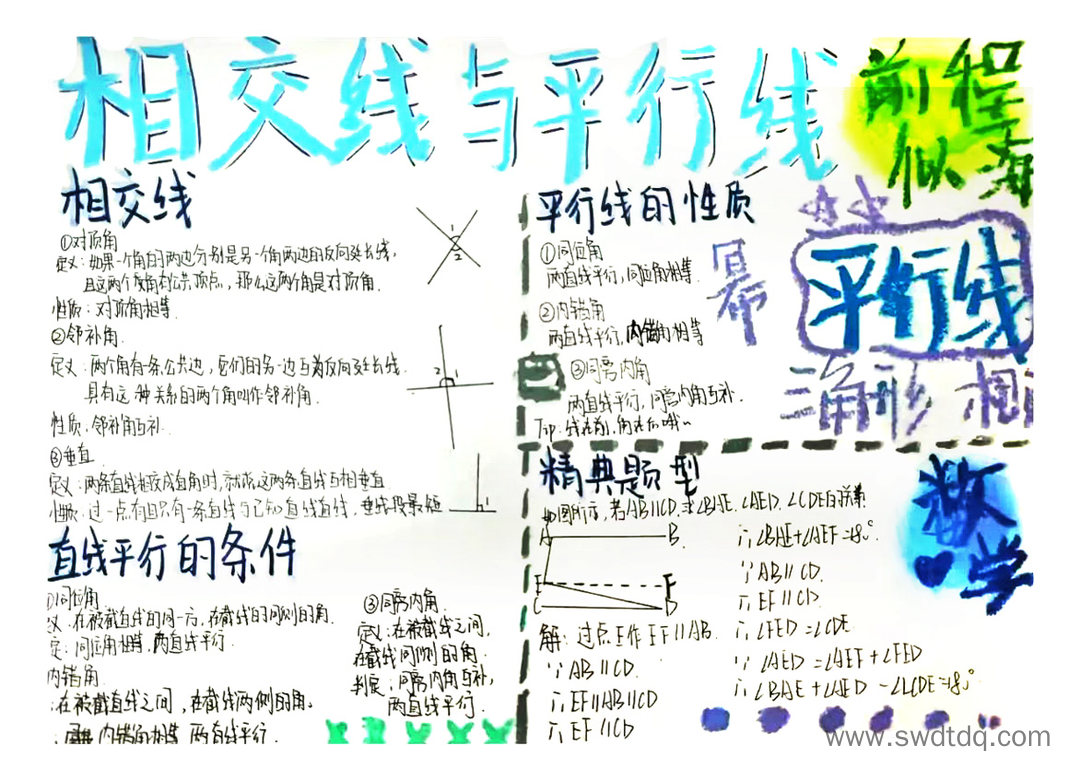 相交线与平行线
前程
似海
相交线
①对顶角
定义:如果一个角的两边分别是另一个角两边的反向延长线,
且这两个角有公共顶点,那么这两个角是对顶角.
性质:对顶角相等.
②邻补角.
定义:两个角有一条公共边,它们的另一边互为反向延长线.
具有这种关系的两个角叫作邻补角.
性质:邻补角互补.
③垂直
定义:两条直线相交成直角时,就说这两条直线互相垂直
性质:过一点有且只有一条直线与已知直线直线,垂线段最短
1
2
2
1
1
直线平行的条件
①同位角
义:在被截直线的同一方,在截线的同侧的角.
定:同位角相等,两直线平行.
内错角.
:在被截直线之间,在截线两侧的角。
内错角相等 两直线平行.
③同旁内角.
定义:在被截线之间,
在截线同侧的角.
判定:同旁内角互补,
两直线平行.
平行线的性质
①同位角
两直线平行,同位角相等.
②内错角
两直线平行,内错角相等
③同旁内角
两直线平行,同旁内角互补.
Tip:线在前,角在后哦~
幂
平行线
三角形 相
精典题型
如图所示,若AB∥CD,求∠BAE、∠AED、∠CDE的关系
A B.
E F
C D
解:过点E作EF∥AB.
∵AB∥CD.
∴EF∥AB∥CD
∴EF∥CD
∴∠BAE+∠AEF=180°.
∵AB∥CD.
∴EF∥CD.
∴∠FED=∠CDE
∵∠AED=∠AEF+∠FED
∴∠BAE+∠AED-∠CDE=180°
数
学
www.swdtdq.com